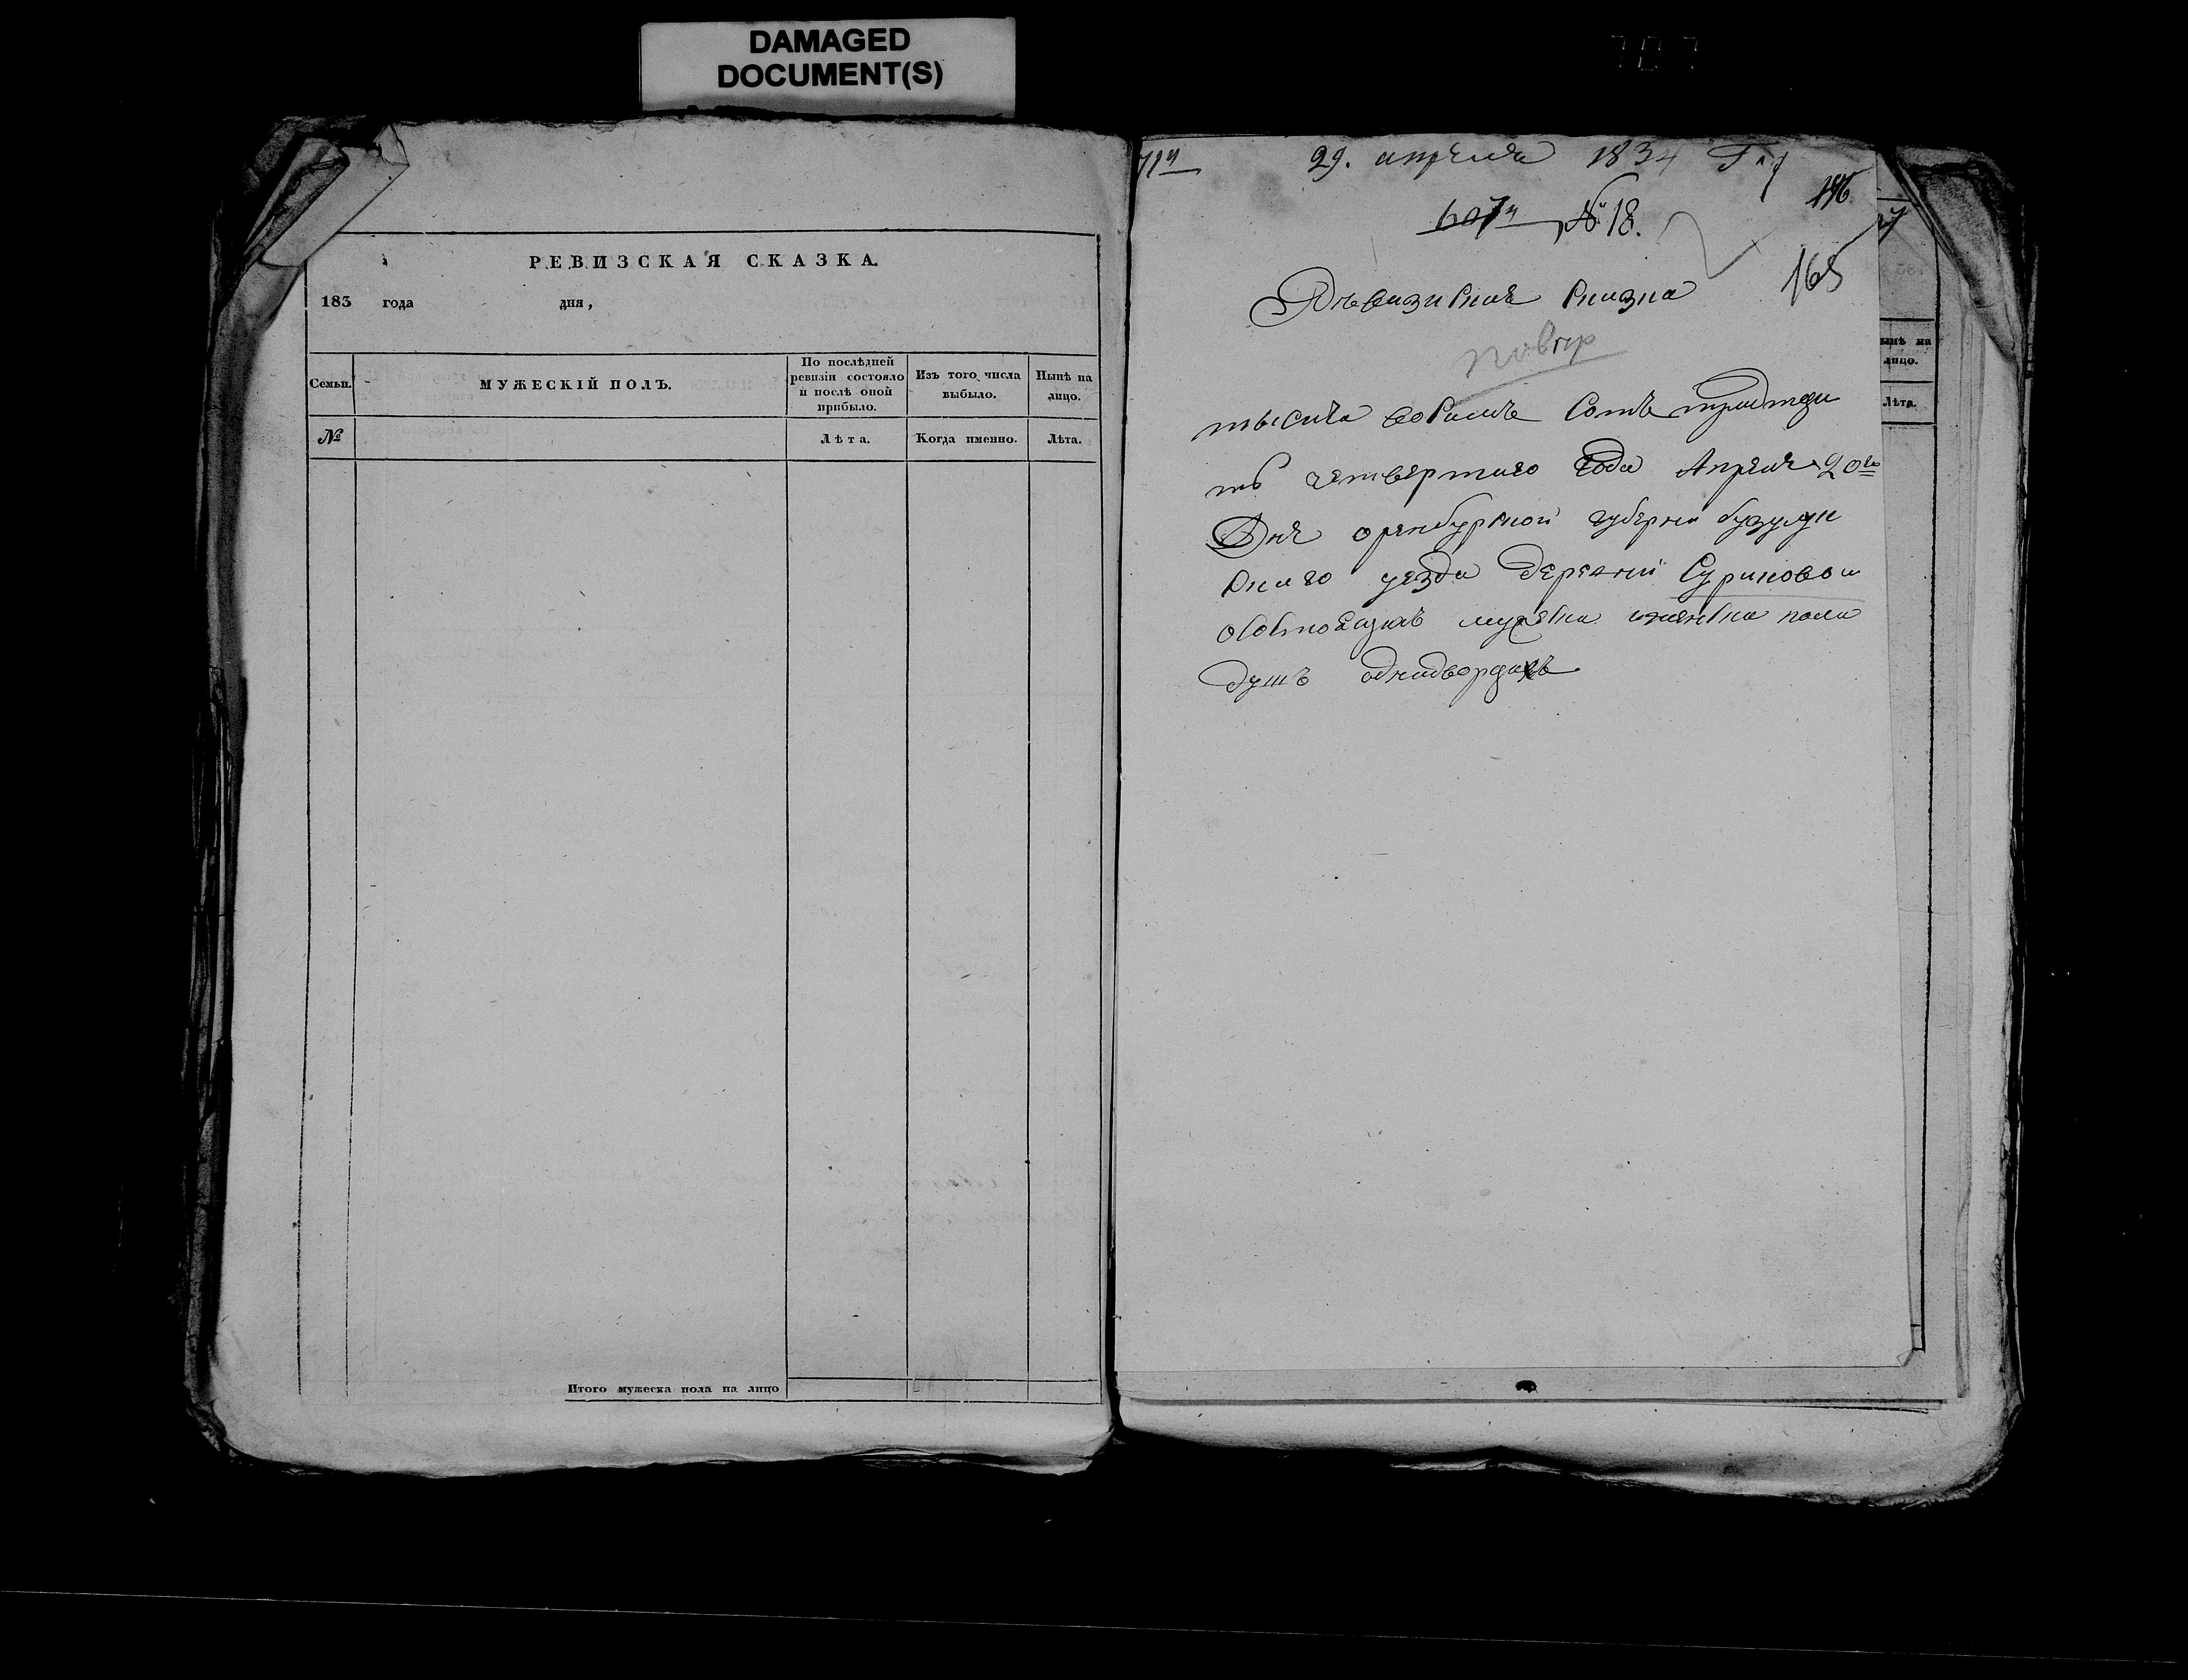 DAMAGED
DOCUMENT(S)
РЕВИЗСКАЯ СКАЗКА.
183 года дня,
Семьи.
МУЖЕСКІЙ ПОЛЪ.
По послѣдней
ревизіи состояло
и послѣ оной
прибыло.
Изъ того числа
выбыло.
Нынѣ на
лицо.
№
Лѣта.
Когда именно.
Лѣта.
Итого мужеска пола на лицо
29. апреля 1834
607й № 18.
146
165
Ревизская сказка
тысеча восемъ сотъ тридцеи
тѣ четвертаго года Апреля 20го
Дня оренбурской губерни бузулу
скаго уезда деревни Суриковои
о мужеска иженска пола
душъ однадворцахъ
ынѣ на
лицо.
Лѣта.